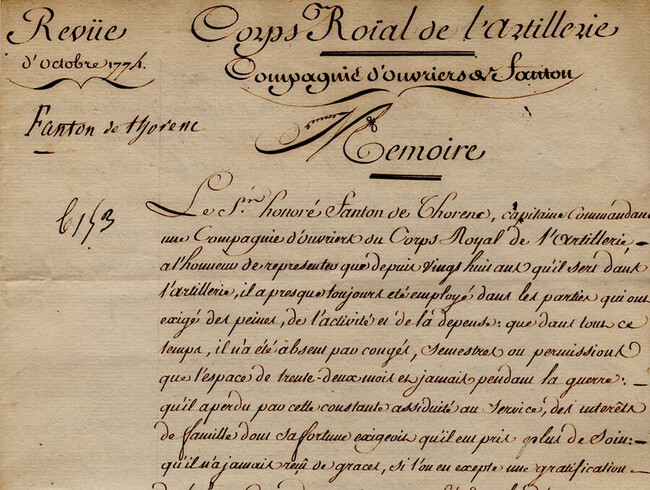 Revüe
d'Octobre 1774.
Fanton de thorenc
Corps Roïal de l'Artillerie
Compagnie d'ouvriers de Fanton
Memoire
Le S.r honoré Fanton de Thorenc, capitaine Commandant
une Compagnie d'ouvriers du Corps Royal de l'Artillerie,
a l'honneur de representer que depuis vingt huit ans qu'il sert dans
l'artillerie, il a presque toujours eté employé dans les parties qui ont
exigé des peines, de l'activité et de la depense: que dans tout ce
temps, il n'a été absent par congés, semestres ou permissions
que l'espace de trente-deux mois et jamais pendant la guerre: —
qu'il a perdu par cette constante assiduité au Service, des interêts
de famille dont sa fortune exigeoit qu'il em pris plus de Soin:
qu'il n'a jamais reçû de graces, si l'on en exepte une gratification